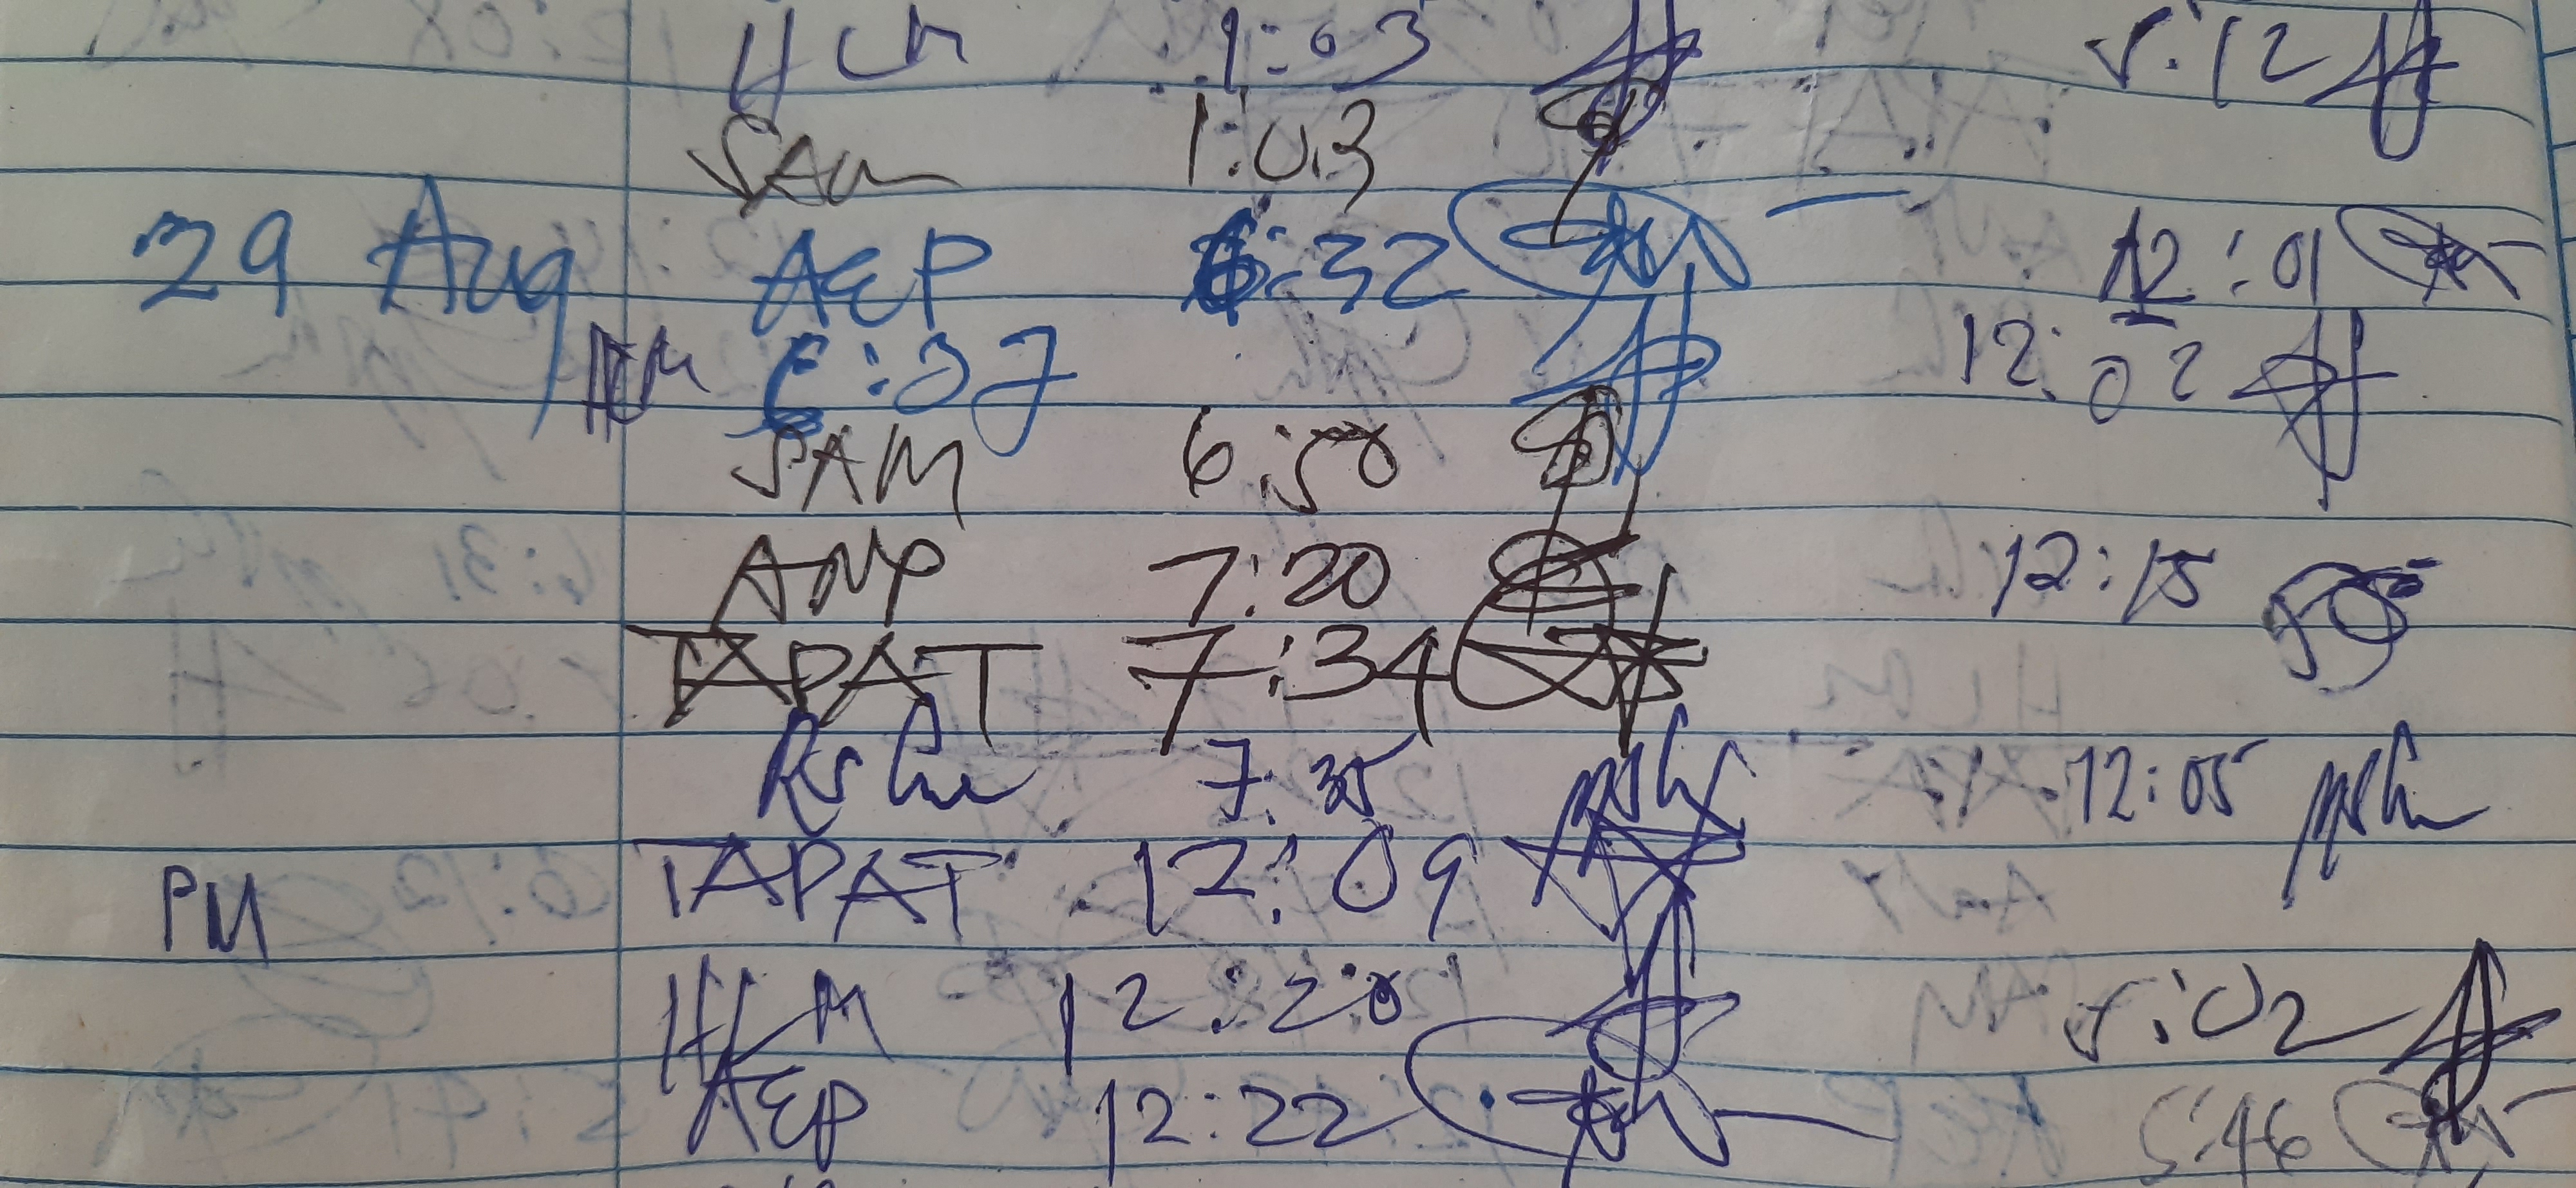 HLM 1:03 5:12
SAM 1:03
29 Aug AEP 6:32 12:01
HLM 6:37 12:02
SAM 6:50
ANP 7:20 12:15
TAPAT 7:34
7:35 12:05
PM TAPAT 12:09
HLM 12:20 5:02
AEP 12:22 5:46